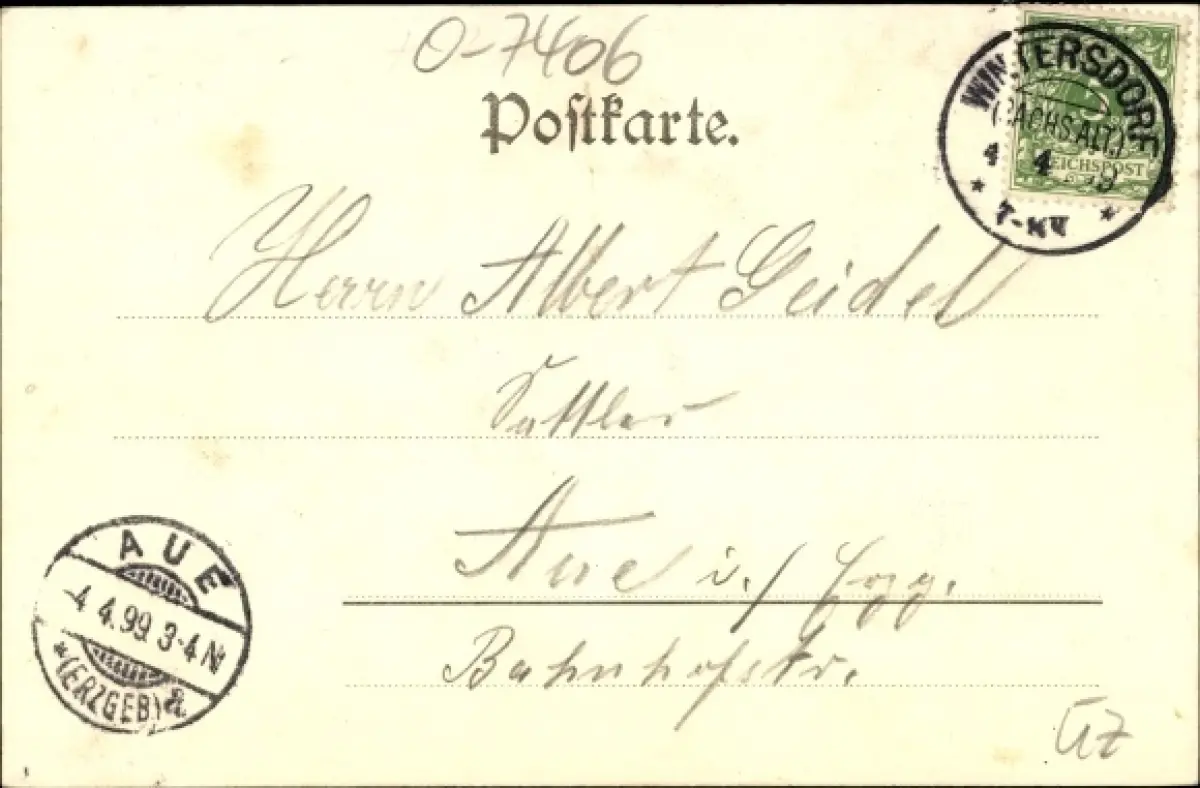 O-7406
Postkarte.
WINTERSDORF
(SACHS.ALT.)
4 4 99
7-8V
REICHSPOST
Herrn Albert Geidel
Sattler
Aue i./Erzg.
Bahnhofstr.
AUE
4 4.99 3-4N
*(ERZGEB)a